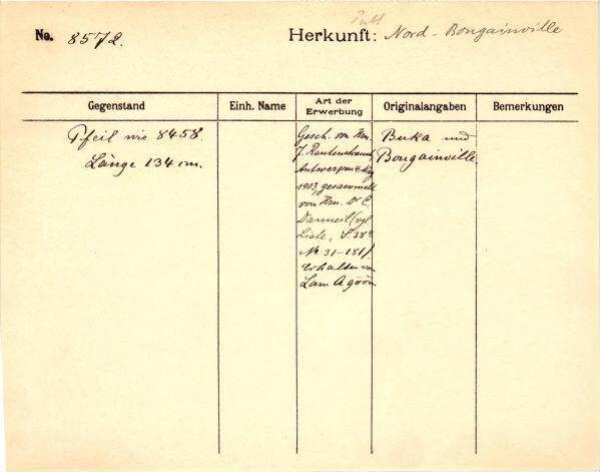 No. 8572.
Herkunft: Nord - Bougainville
Gegenstand
Einh. Name
Art der
Erwerbung
Originalangaben
Bemerkungen
Pfeil wie 8458.
Länge 134 cm.
Gesch. von Hrn.
J.
Antwerpen
1903, gesammelt
von Hrn. Dr C.
Danneil (vgl
Liste, S. 38
No 31-181)
erhalten von
Lam
Buka und
Bougainville